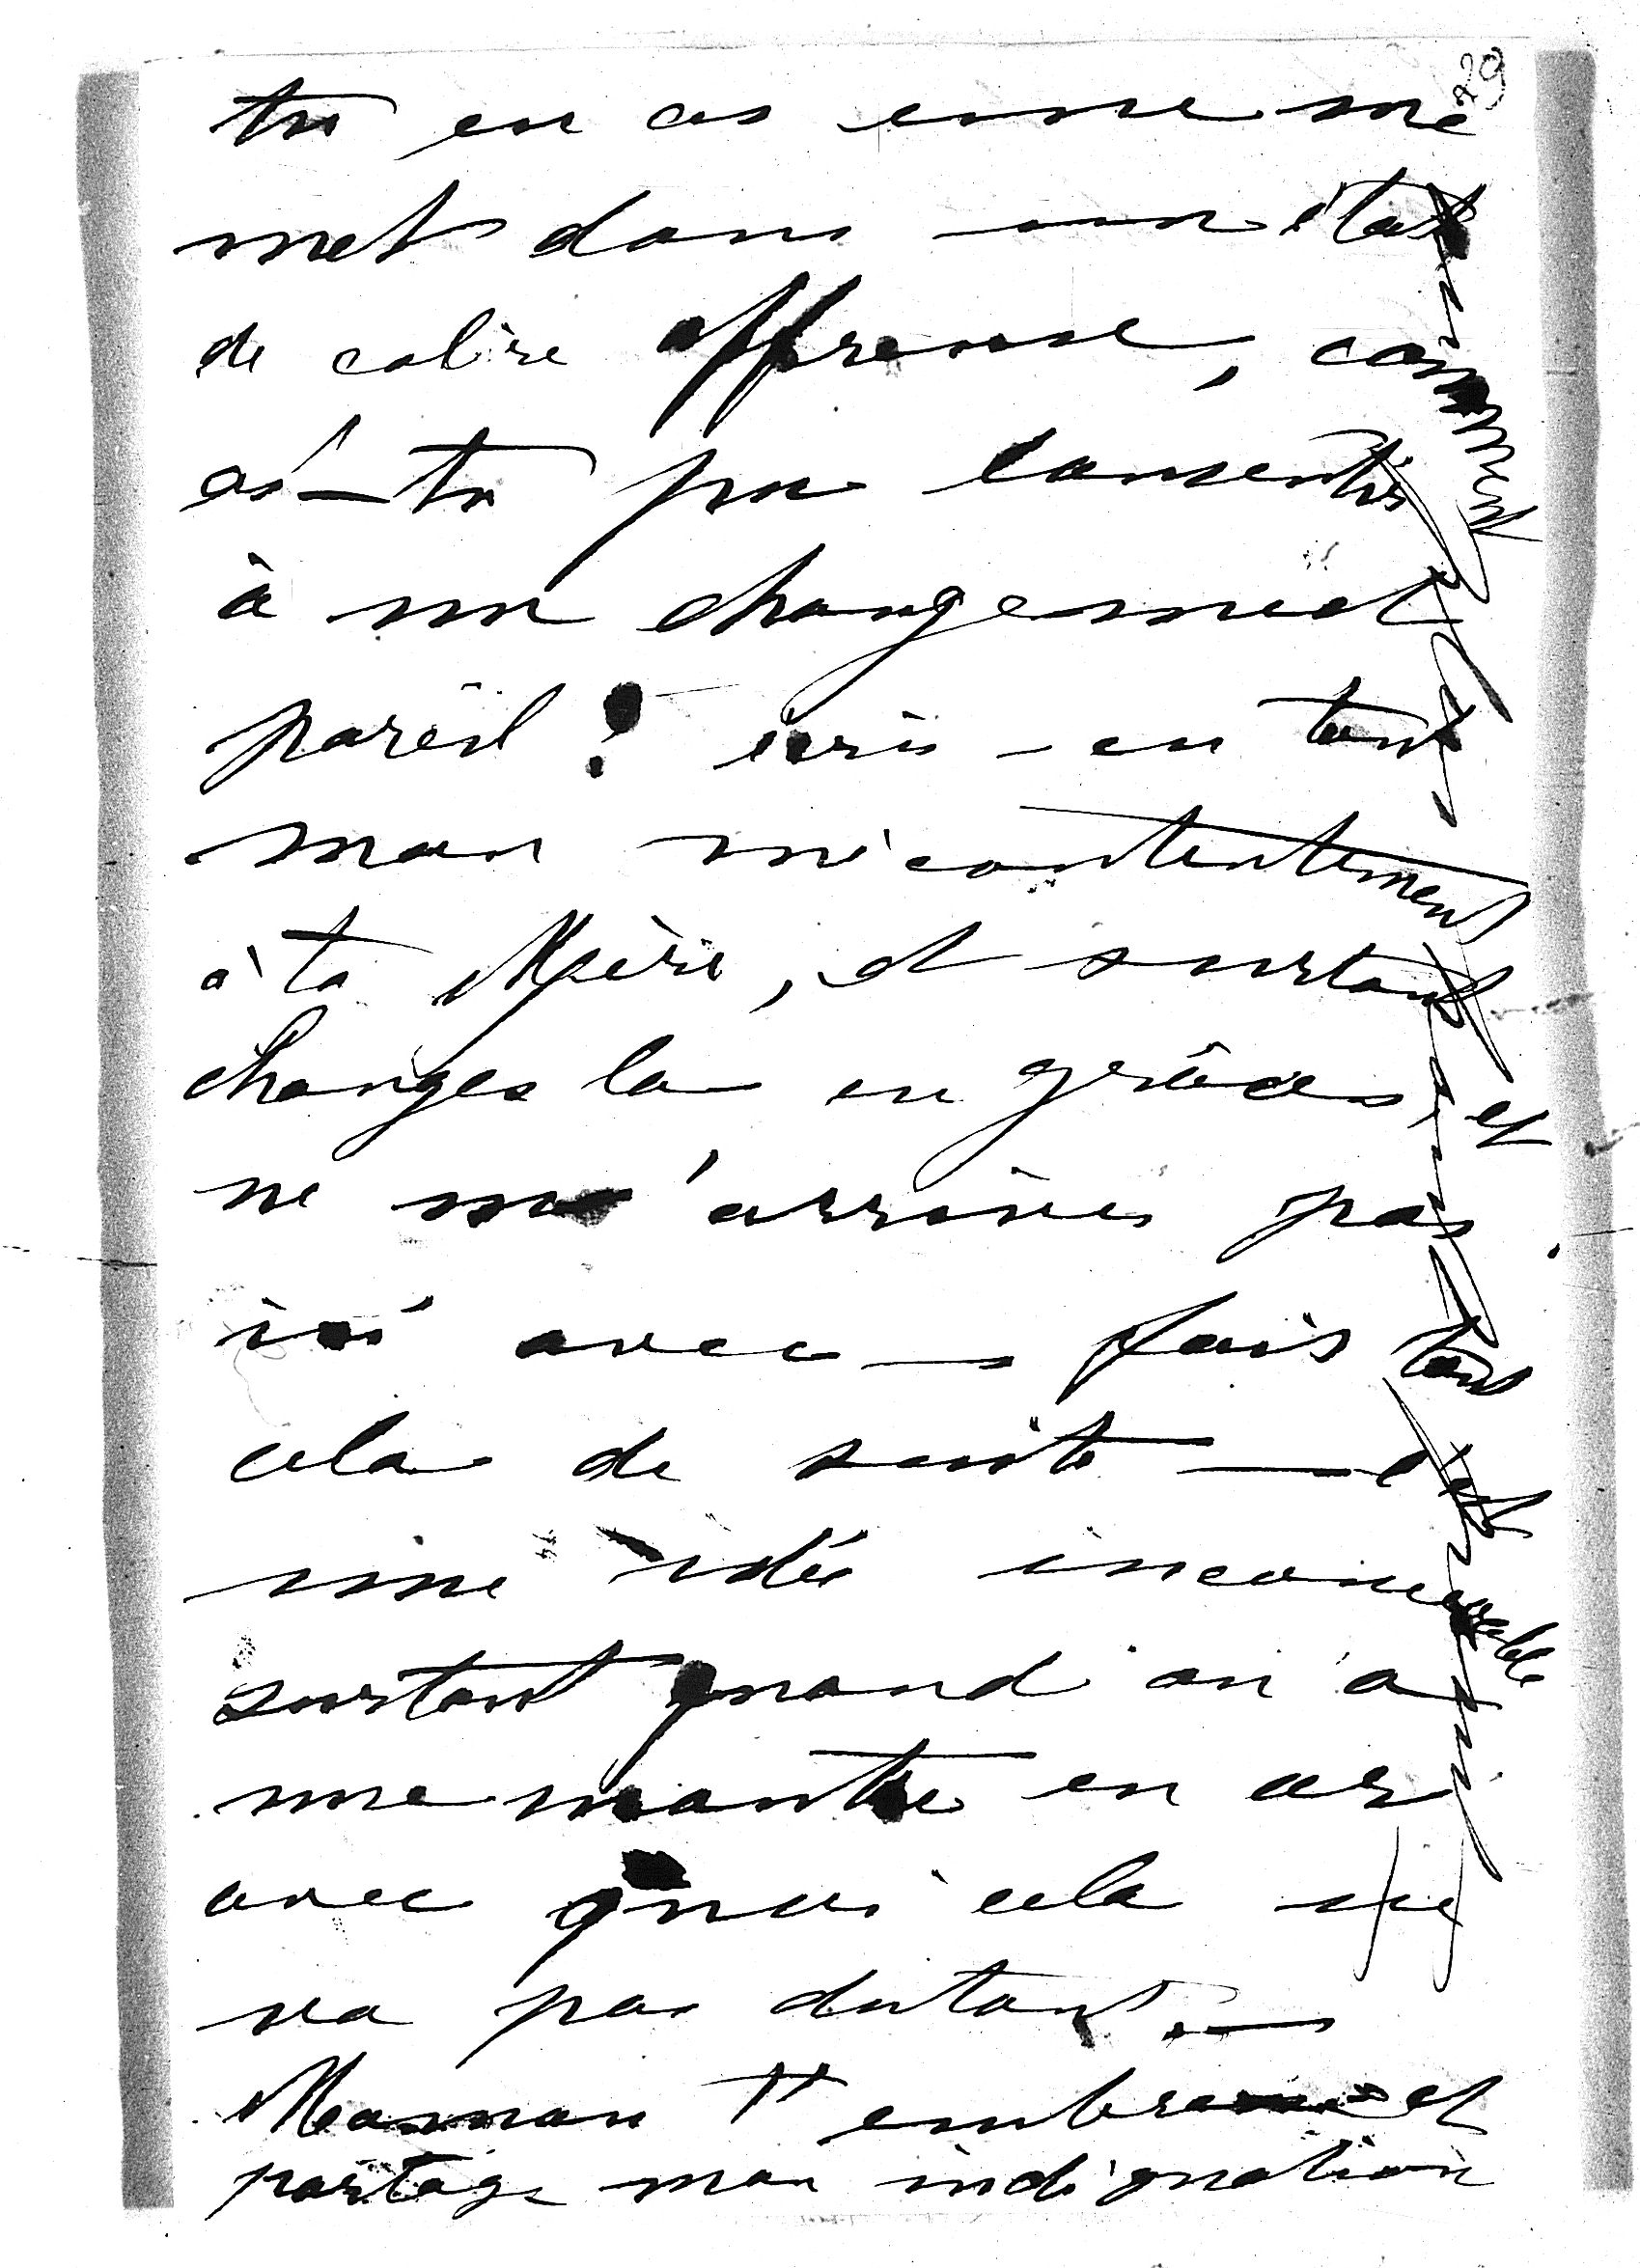 29
tu en as une me
met dans un état
de colère affreuse, comment
as-tu pu consentir
à un changement
pareil? écris-en tout
mon mécontentement
à ta Mère, et surtout
changes la en grâces, et
ne m'arrives pas
ici avec — fais tout
cela de suite — c'est
une idée
surtout quand on a
une montre en or
avec quoi cela ne
va pas dutout. —
Maman t'embrasse et
partage mon indignation